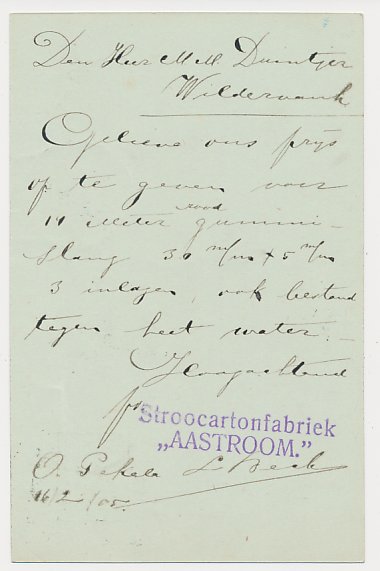 Den Heer M M Duintjer
Wildervank
Gelieve ons prijs
op te geven voor
rood
14 Meter gummi-
slang 30 m/m x 5 m/m
3 inlagen, ook bestand
tegen heet water.
Hoogachtend
pr
Stroocartonfabriek
„AASTROOM.”
O. Pekela L Beck
16/2 /05.